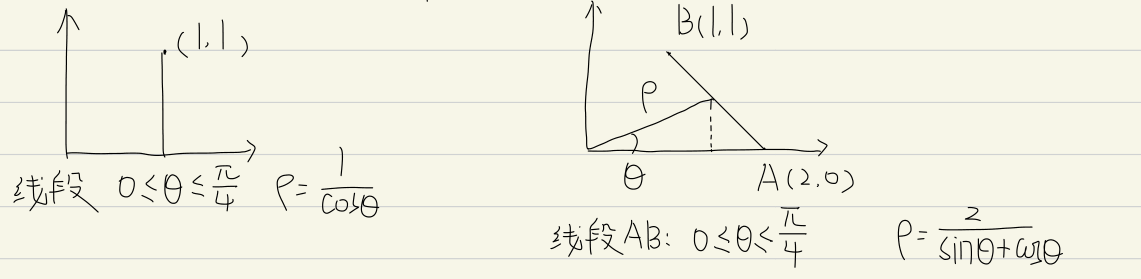 (1,1)
线段 0≤θ≤π/4 ρ=1/cosθ
B(1,1)
ρ
θ A(2,0)
线段AB: 0≤θ≤π/4 ρ=2/(sinθ+cosθ)